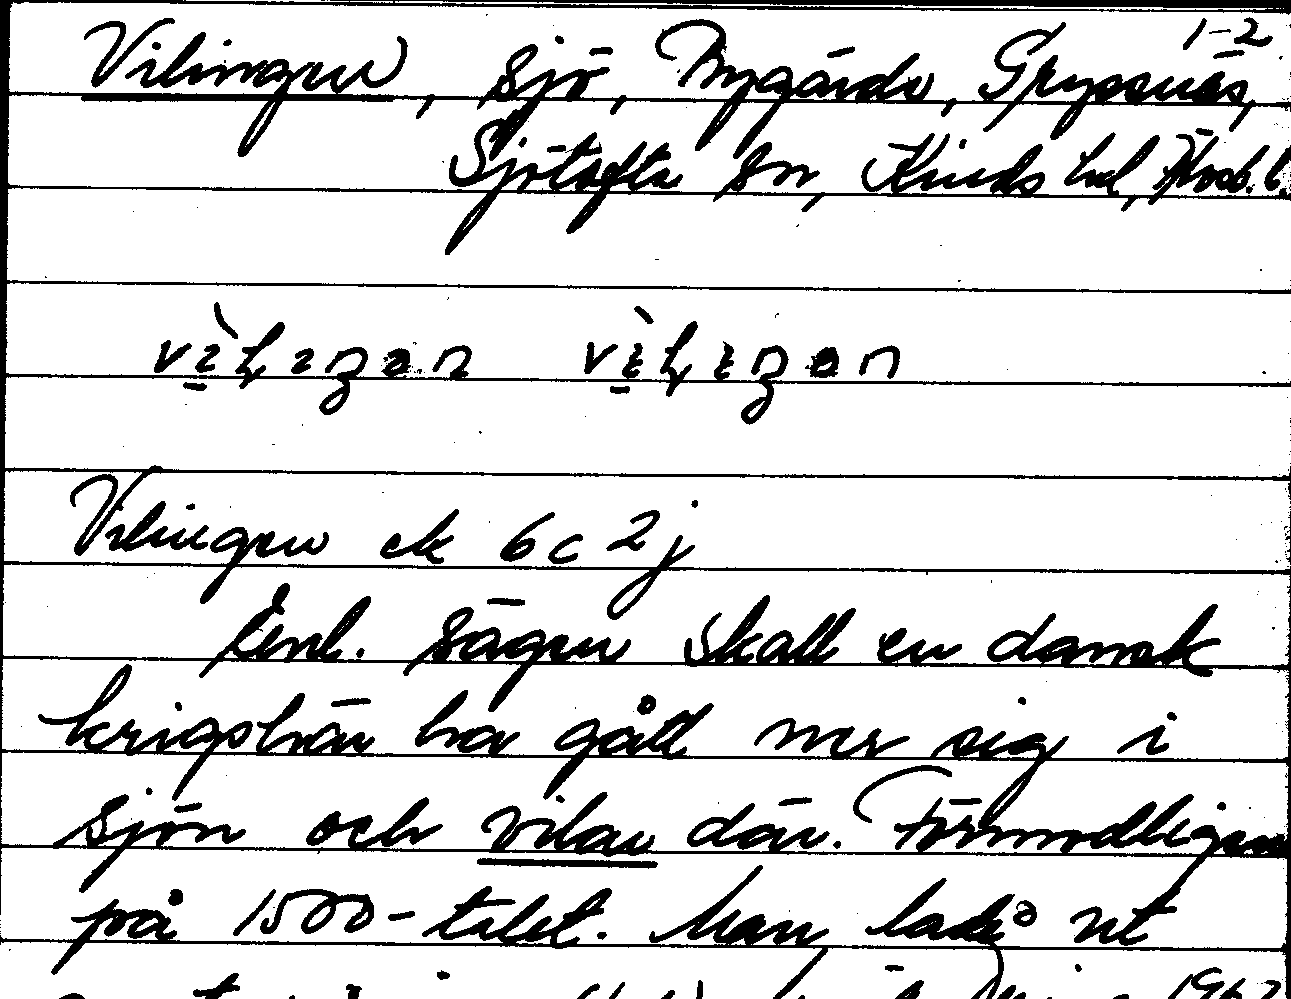 1-2
Vilingen, sjö, Nygärde, Gryssnäs,
Sjötofta sn, Kinds hd, Älvsb. l.
Vilingen ek 6c 2j
Enl. sägen skall en dansk
krigshär ha gått ner sig i
sjön och vilar där. Förmodligen
på 1500-talet. Man lade ut